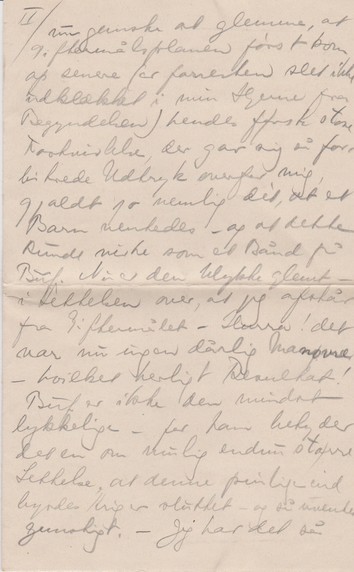 II/
nu ganske at glemme, at
Giftermålsplanen først kom
op senere (er forresten slet ikke
udklækket i min Hjerne fra
Begyndelsen) hendes store
Fortvivlelse, der gav sig så for-
bitrede Udtryk overfor mig,
gjaldt jo nemlig dét, at et
Barn ventedes – og at dette
kunde virke som et Bånd på
Buf. Nu er den Ulykke glemt –
i Lettelsen over, at jeg afstår
fra Giftermålet – Hurra! det
var nu ingen dårlig Manøvre
– hvilket herligt Resultat!
Buf er ikke den mindst
lykkelige – for ham betyder
det en om mulig endnu større
Lettelse, at denne pinlige ind-
byrdes Krig er sluttet – og så uventet
gunstigt. – Jeg har det så